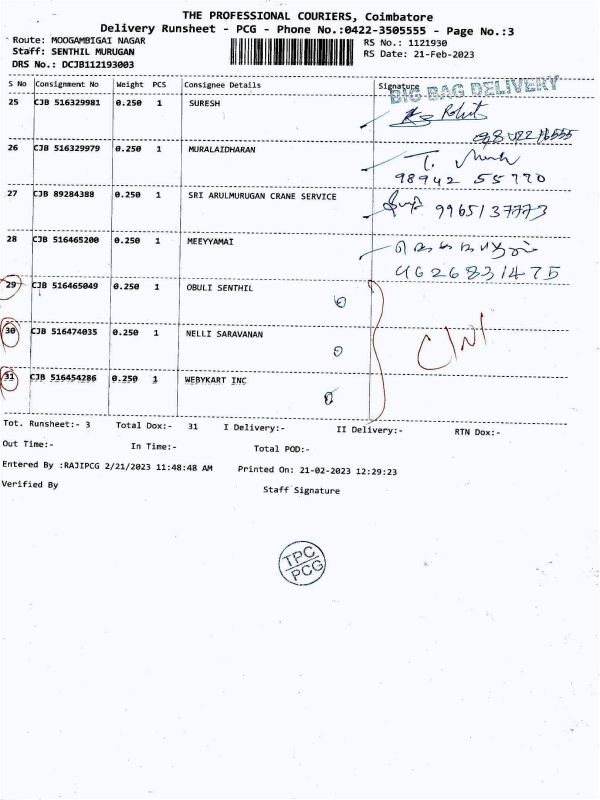 THE PROFESSIONAL COURIERS, Coimbatore
Delivery Runsheet - PCG - Phone No.:0422-3505555 - Page No.:3
Route: MOOGAMBIGAI NAGAR
RS No.: 1121930
Staff: SENTHIL MURUGAN
RS Date: 21-Feb-2023
DRS No.: DCJB112193003
S No Consignment No Weight PCS Consignee Details Signature
BIG BAG DELIVERY
25 CJB 516329981 0.250 1 SURESH
26 CJB 516329979 0.250 1 MURALAIDHARAN
98942 55770
27 CJB 89284388 0.250 1 SRI ARULMURUGAN CRANE SERVICE
9965137773
28 CJB 516465200 0.250 1 MEEYYAMAI
9626831475
29 CJB 516465049 0.250 1 OBULI SENTHIL
30 CJB 516474035 0.250 1 NELLI SARAVANAN
31 CJB 516454286 0.250 1 WEBYKART INC
Tot. Runsheet:- 3 Total Dox:- 31 I Delivery:- II Delivery:- RTN Dox:-
Out Time:- In Time:- Total POD:-
Entered By :RAJIPCG 2/21/2023 11:48:48 AM Printed On: 21-02-2023 12:29:23
Verified By Staff Signature
TPC
PCG